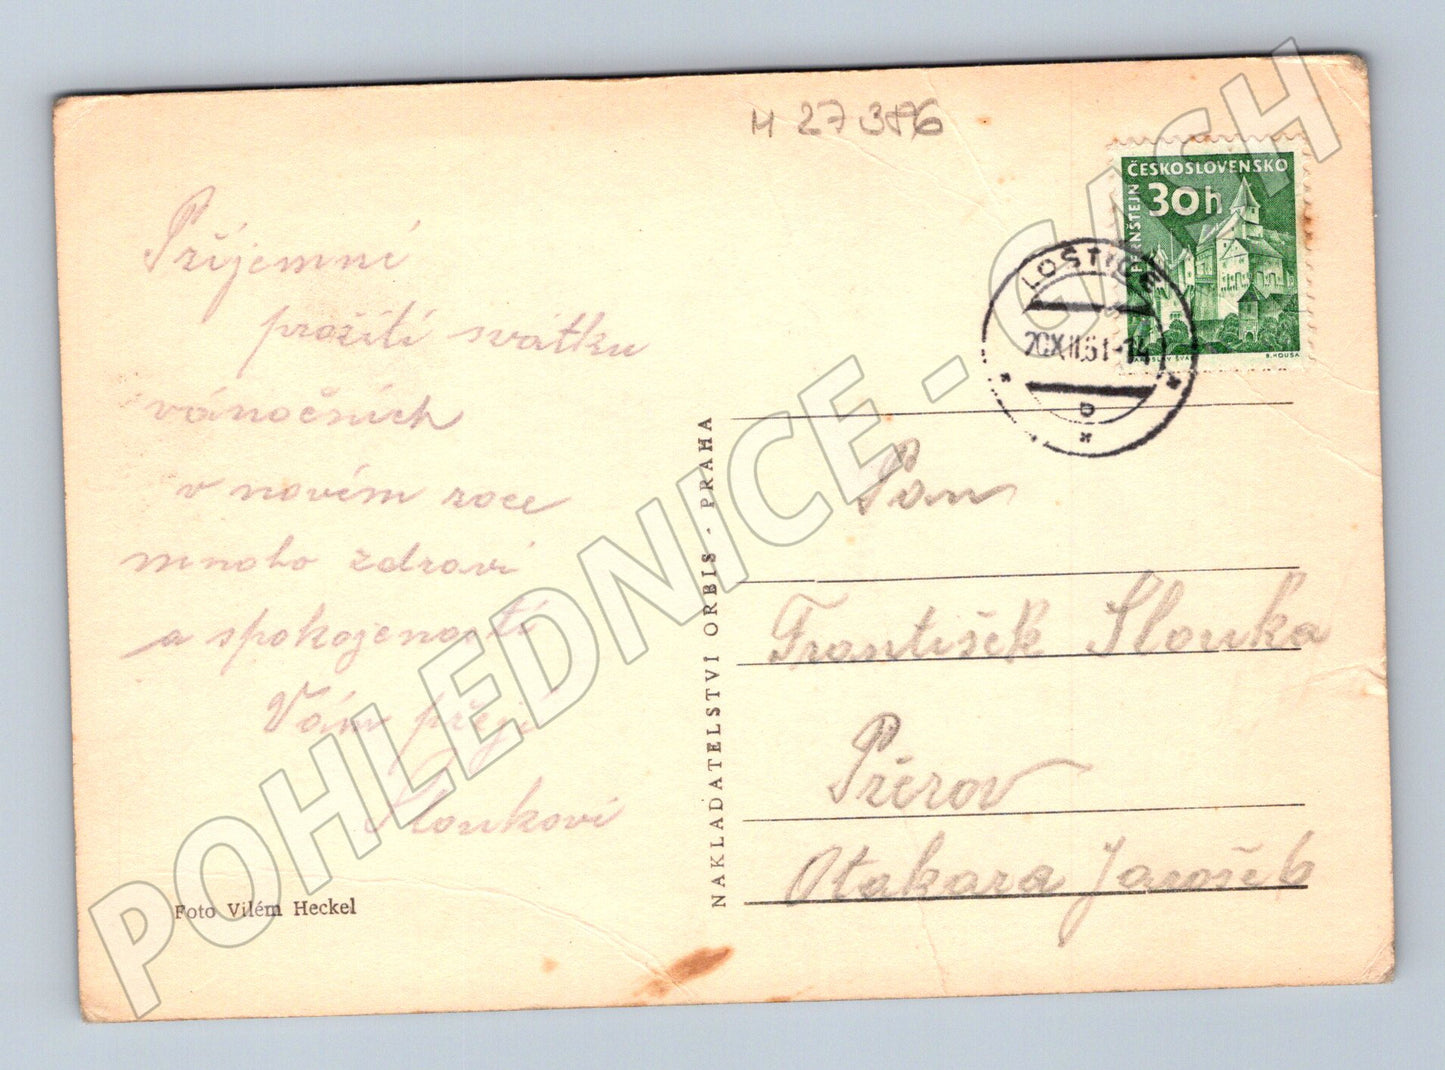 M 27386
ČESKOSLOVENSKO
30h
PERNŠTEJN
JAROSLAV ŠVÁB
B. HOUSA
LOŠTICE
20.XII.61-14
b
Příjemné
prožití svátku
vánočních
v novém roce
mnoho zdraví
a spokojenosti
Vám přejí
Sloukovi
Foto Vilém Heckel
NAKLADATELSTVÍ ORBIS - PRAHA
Pan
František Slouka
Přerov
Otakara Jaroše 6
POHLEDNICE - CASH